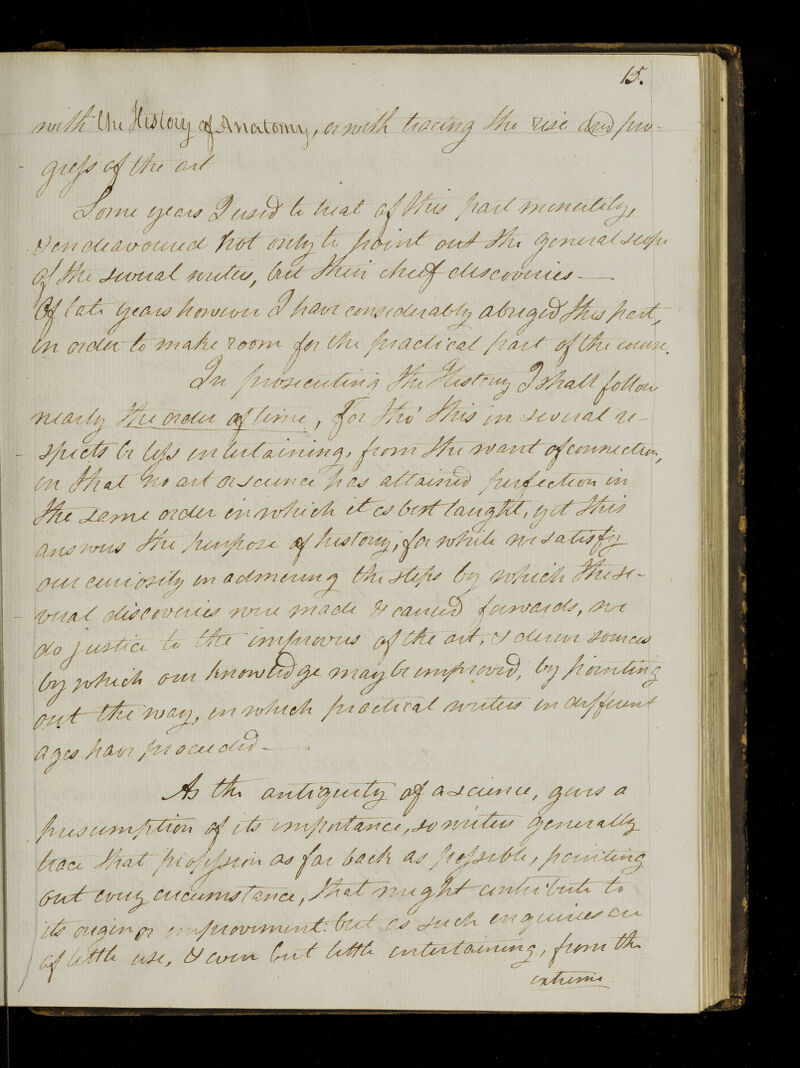 15.
with the History of Anatomy, or with tracing the rise and pro-
gress of the art
Some years I used to treat of this part minutely,
& endeavoured not only to point out the general scope
of the several writers, but their cheif discoveries —
Of late years however I have considerably abriged this part,
in order to make room for the practical part of the course.
In prosecuting the History I shall follow
nearly the order of time, For tho' this in several re-
spects be less entertaining, from the want of connection,
in that no art or science has attained perfection in
the same order in which it is best taught, yet this
answers the purpose of history, for while we satisfy
our curiosity in admiring the steps by which the se-
veral discoveries were made & carried forwards, we
do justice to the improvers of the art, & derive sources
by which our knowledge may be improved, by pointing
out the way, in which practical writers in different
ages have proceeded —
As the antiquity of a science, gives a
presumption of its importance, so writers generally
trace that profession as far back as possible, pointing
out every circumstance, that might contribute to
its origin or improvement: but as such enquiries are
of little use, & even but little entertaining, from the
extreme